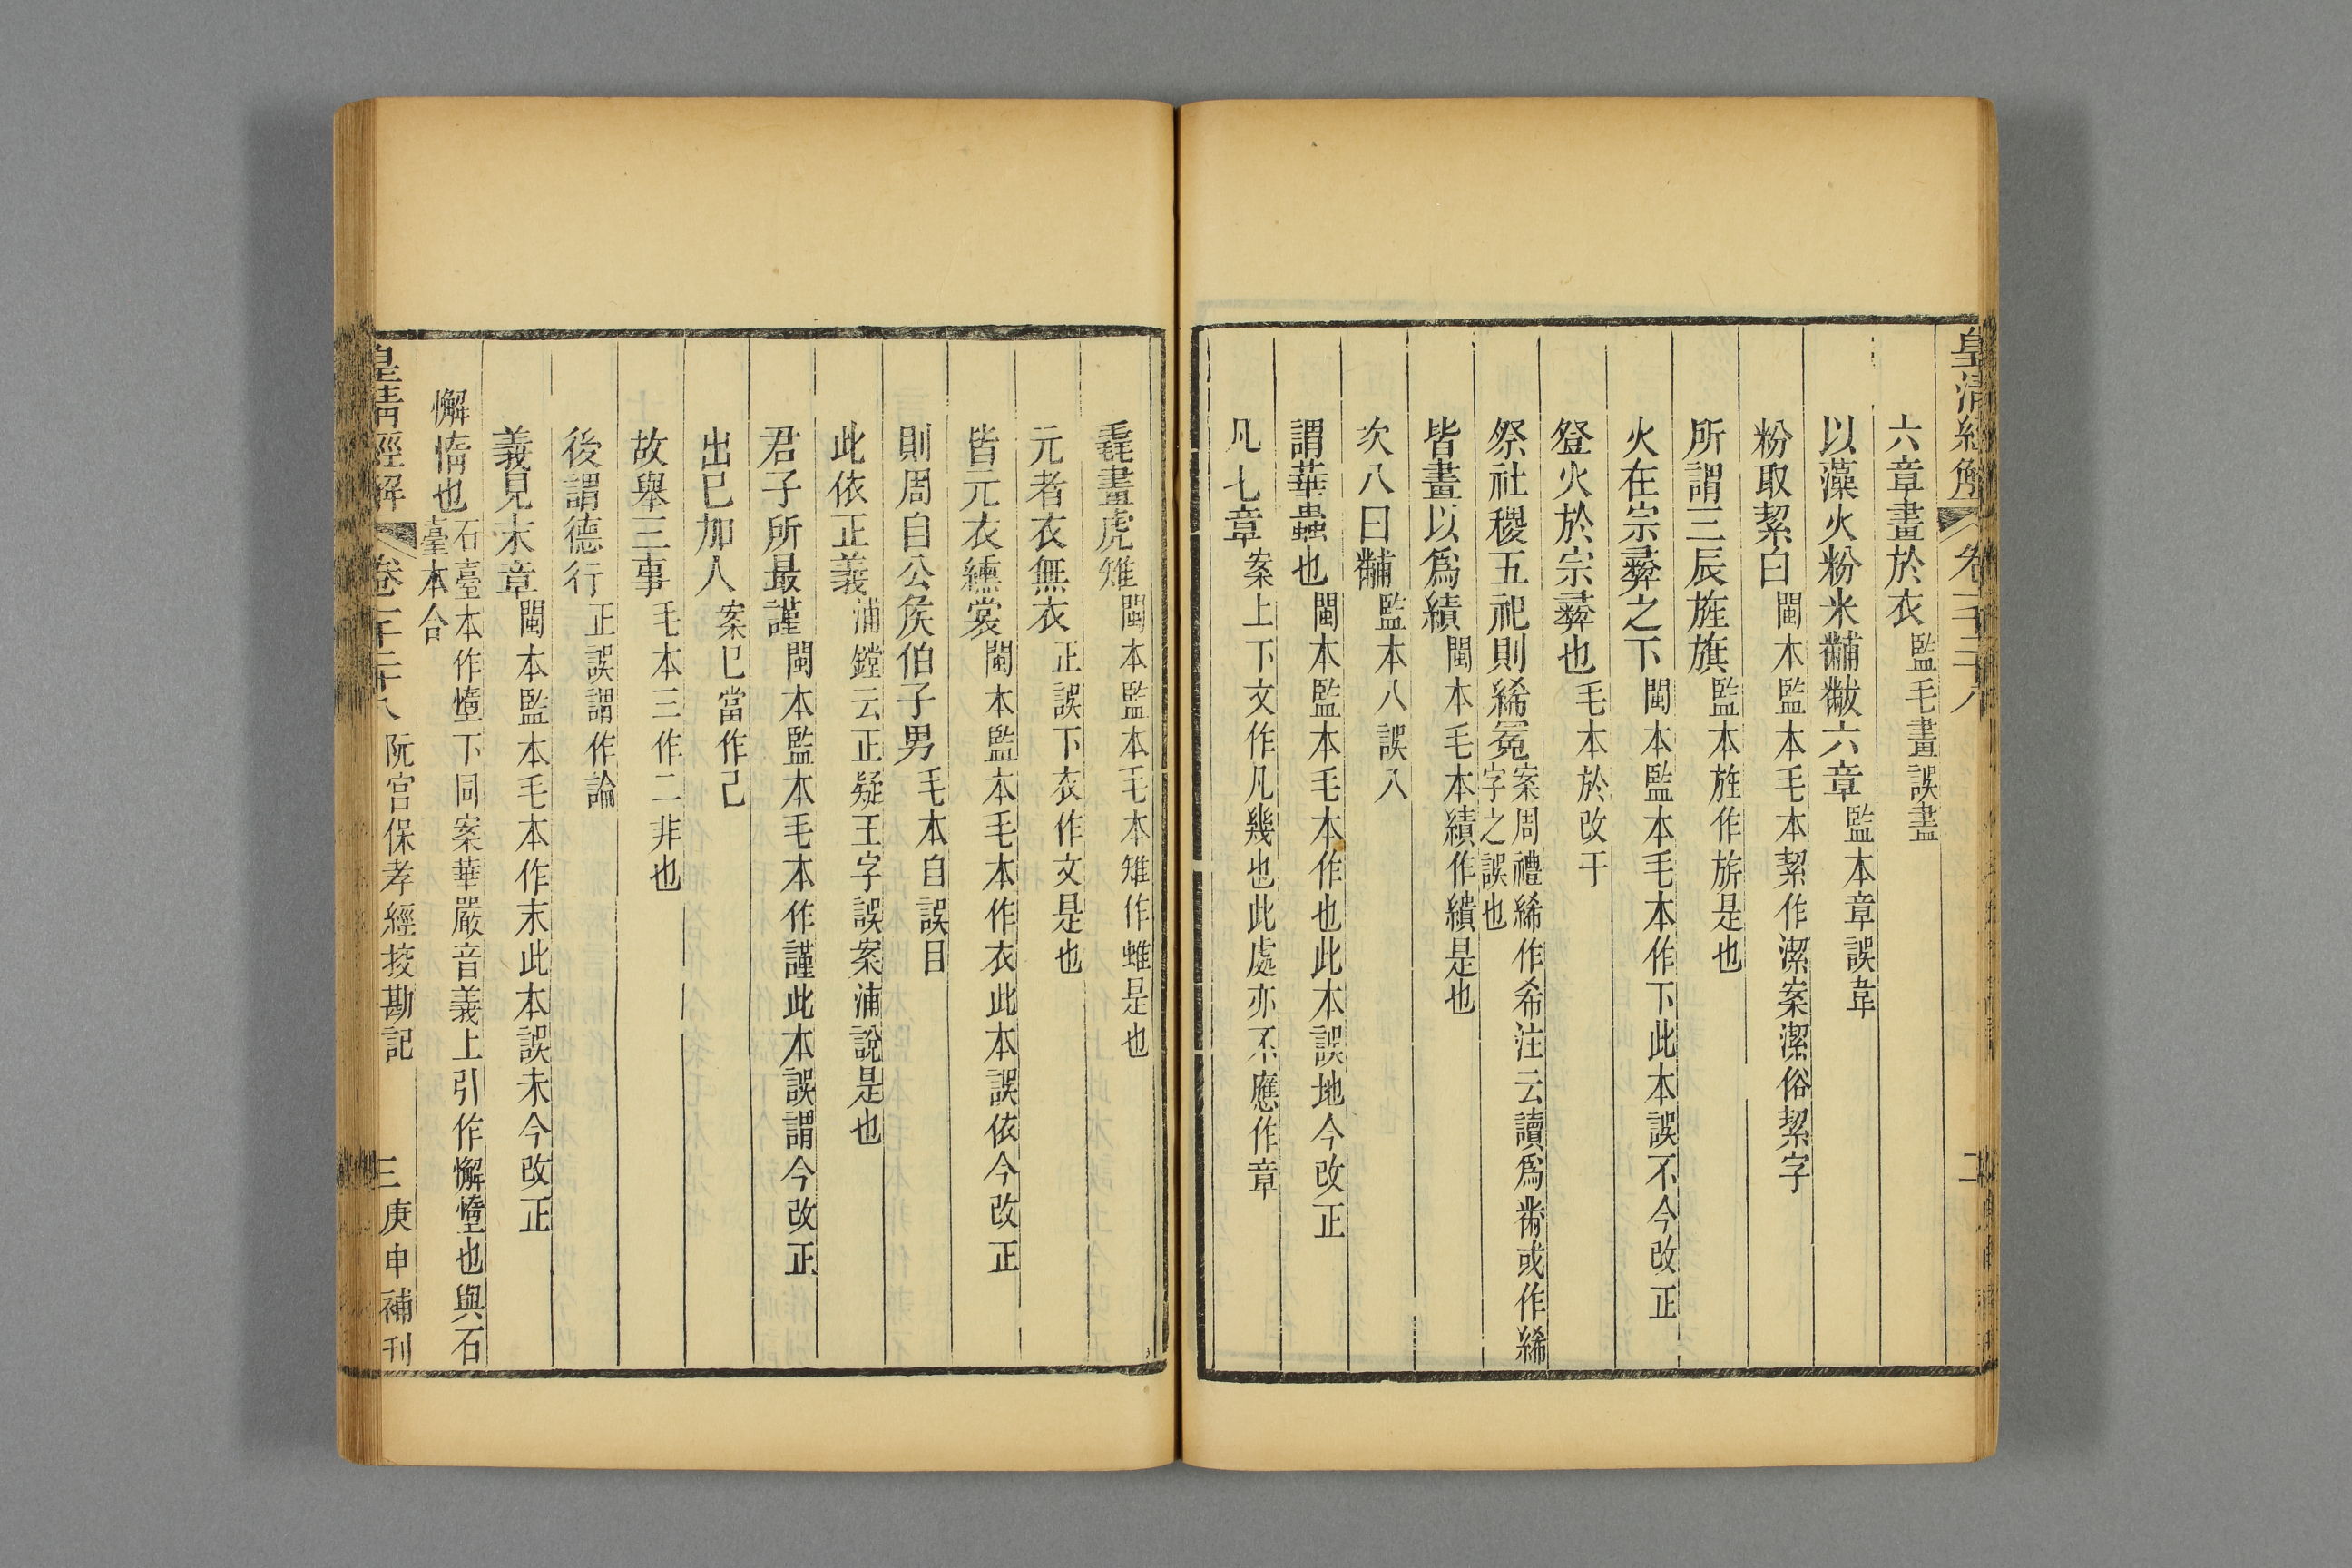 皇清經解 卷一千二十八 二
六章畫於衣 監毛畫誤盡
以藻火粉米黼黻六章 監本章誤韋
粉取絜白 閩本監本毛本絜作潔案潔俗絜字
所謂三辰旌旗 監本旌作旂是也
火在宗彝之下 閩本監本毛本作下此本誤不今改正
登火於宗彝也 毛本於改于
祭社稷五祀則絺冕 案周禮絺作希注云讀爲黹或作絺
字之誤也
皆畫以爲績 閩本毛本績作繢是也
次八曰黼 監本八誤入
謂華蟲也 閩本監本毛本作也此本誤地今改正
凡七章 案上下文作凡幾也此處亦不應作章
毳畫虎雉 閩本監本毛本雉作蜼是也
元者衣無衣 正誤下衣作文是也
皆元衣纁裳 閩本監本毛本作衣此本誤依今改正
則周自公侯伯子男 毛本自誤目
此依正義 浦鏜云正疑王字誤案浦說是也
君子所最謹 閩本監本毛本作謹此本誤謂今改正
出已加人 案已當作己
故舉三事 毛本三作二非也
後謂德行 正誤謂作論
義見末章 閩本監本毛本作末此本誤未今改正
懈惰也 石臺本作憜下同案華嚴音義上引作懈憜也與石
臺本合
皇清經解 卷一千二十八 阮宮保孝經挍勘記 三 庚申補刊